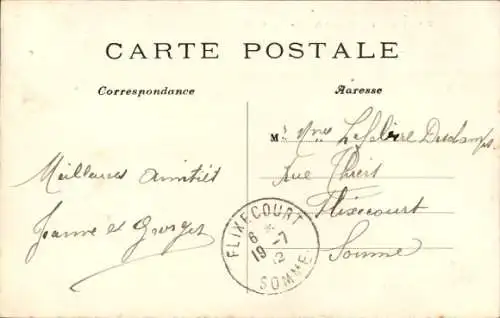 CARTE POSTALE
Correspondance
Adresse
M
Meilleures Amitiés
Jeanne et Georges
Rue Thiers
Flixecourt
Somme
FLIXECOURT
6 * -7
19 12
SOMME